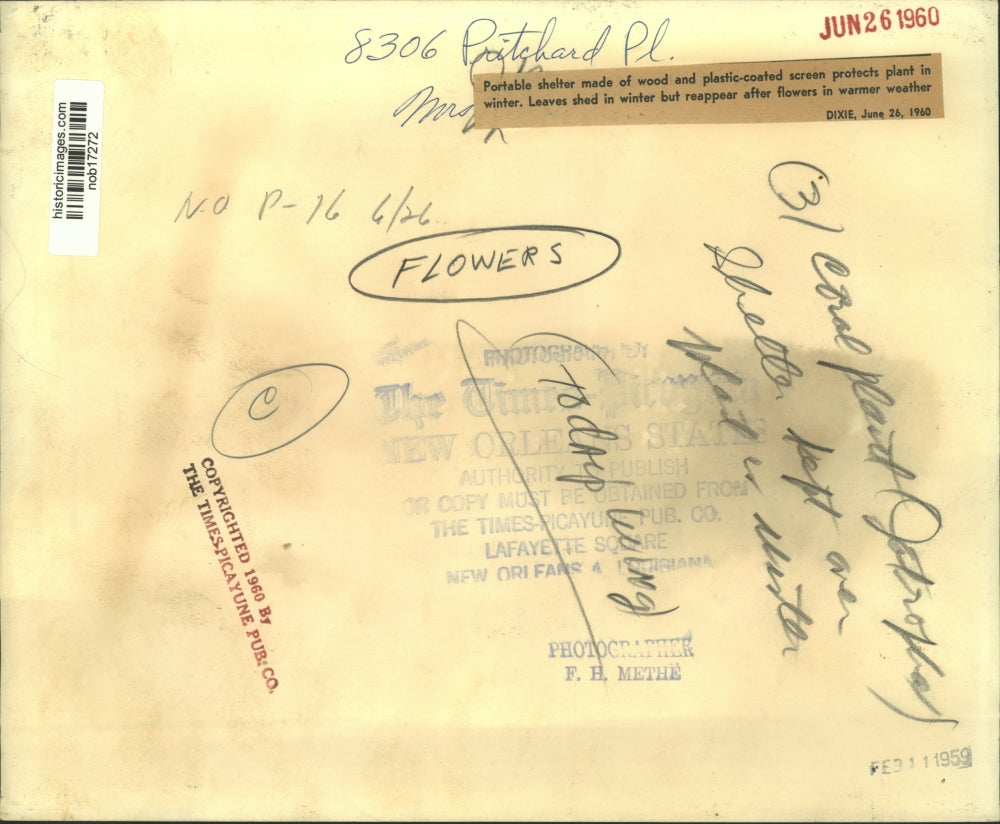 8306 Pritchard Pl.
JUN 26 1960
Portable shelter made of wood and plastic-coated screen protects plant in
winter. Leaves shed in winter but reappear after flowers in warmer weather
DIXIE, June 26, 1960
Mrs
historicimages.com
nob17272
N.O P-16 6/26
FLOWERS
(3) coral plant (Jatropha)
Shelter kept over
plant in winter
C
PHOTOGRAPH BY
The Times-Picayune
NEW ORLEANS STATES
AUTHORITY TO PUBLISH
OR COPY MUST BE OBTAINED FROM
THE TIMES-PICAYUNE PUB. CO.
LAFAYETTE SQUARE
NEW ORLEANS 4, LOUISIANA
COPYRIGHTED 1960 By
THE TIMES-PICAYUNE PUB. CO.
PHOTOGRAPHER
F. H. METHE
FEB 11 1959